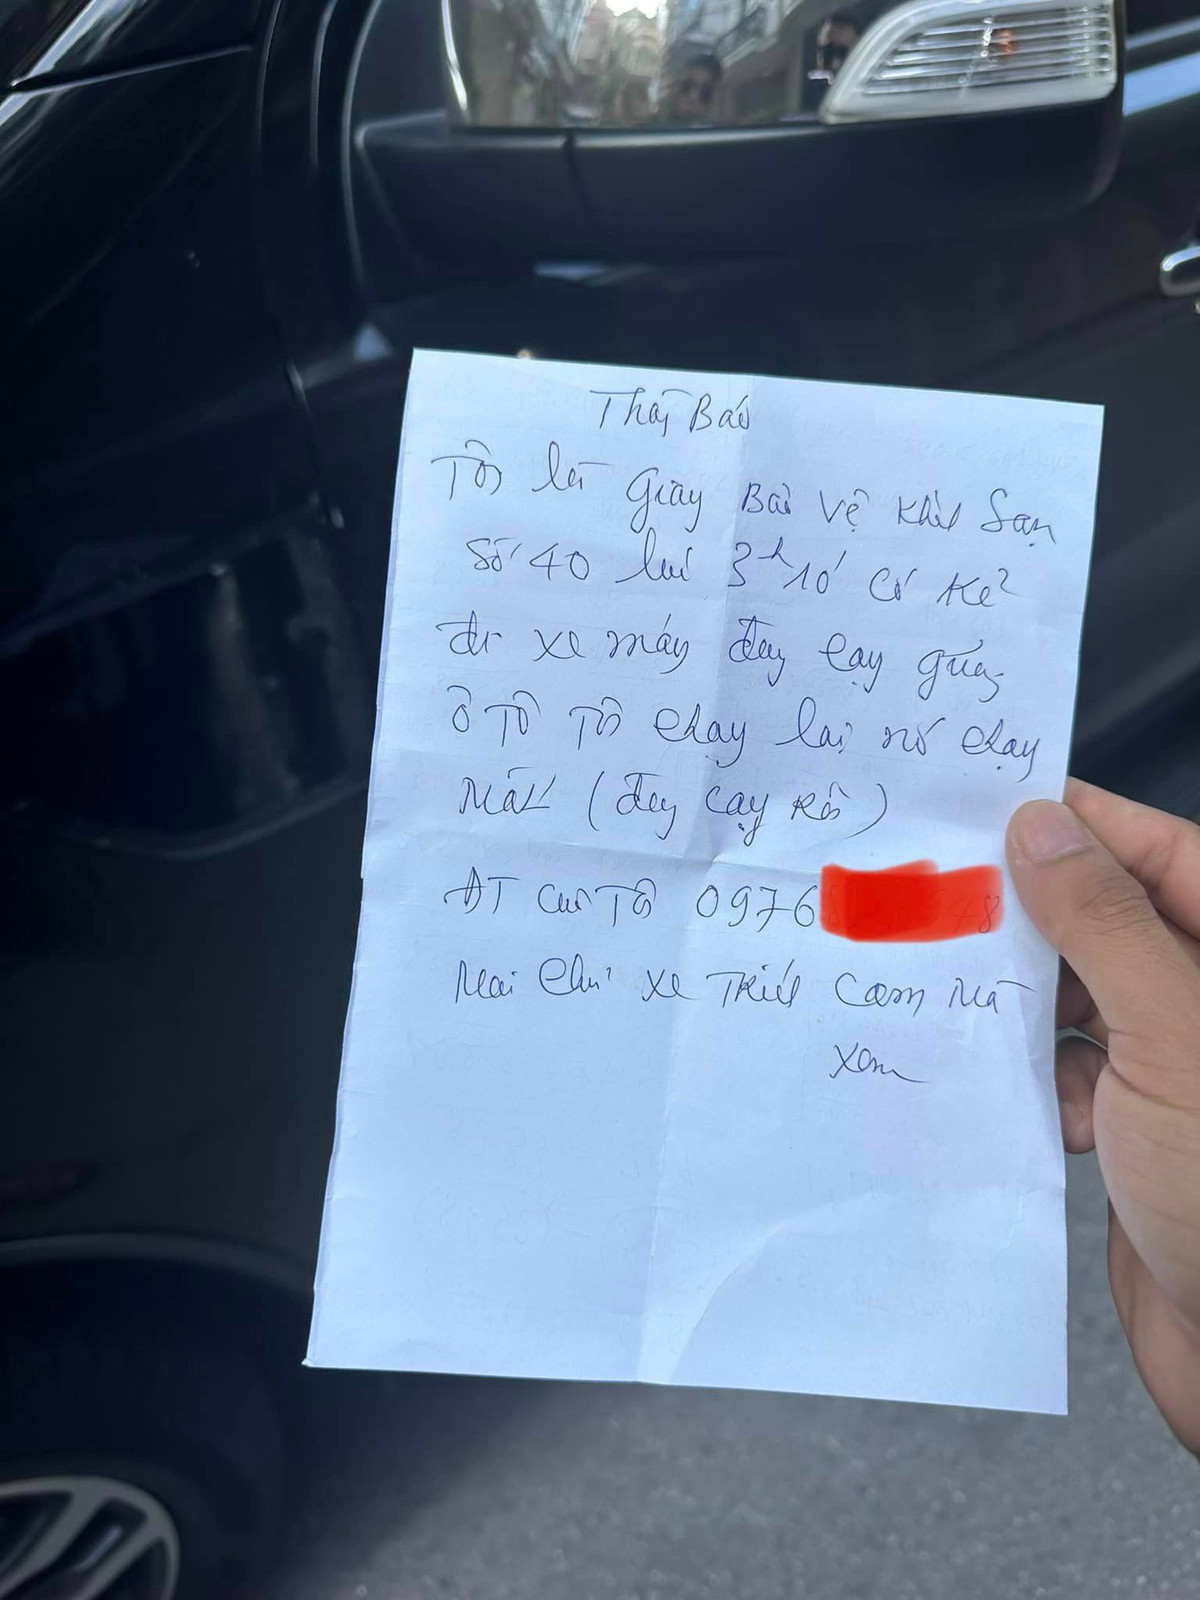 Thôg Báo
Tôi là Giang Bảo Vệ Khách Sạn
Số 40 lúc 3h10' Có Kẻ
đi xe máy đang cạy gương
Ô Tô Tôi chạy lại nó chạy
Mất (đang cạy Rồi)
ĐT của Tôi 0976 48
Mai Chủ xe Trích Cam Mà
Xem